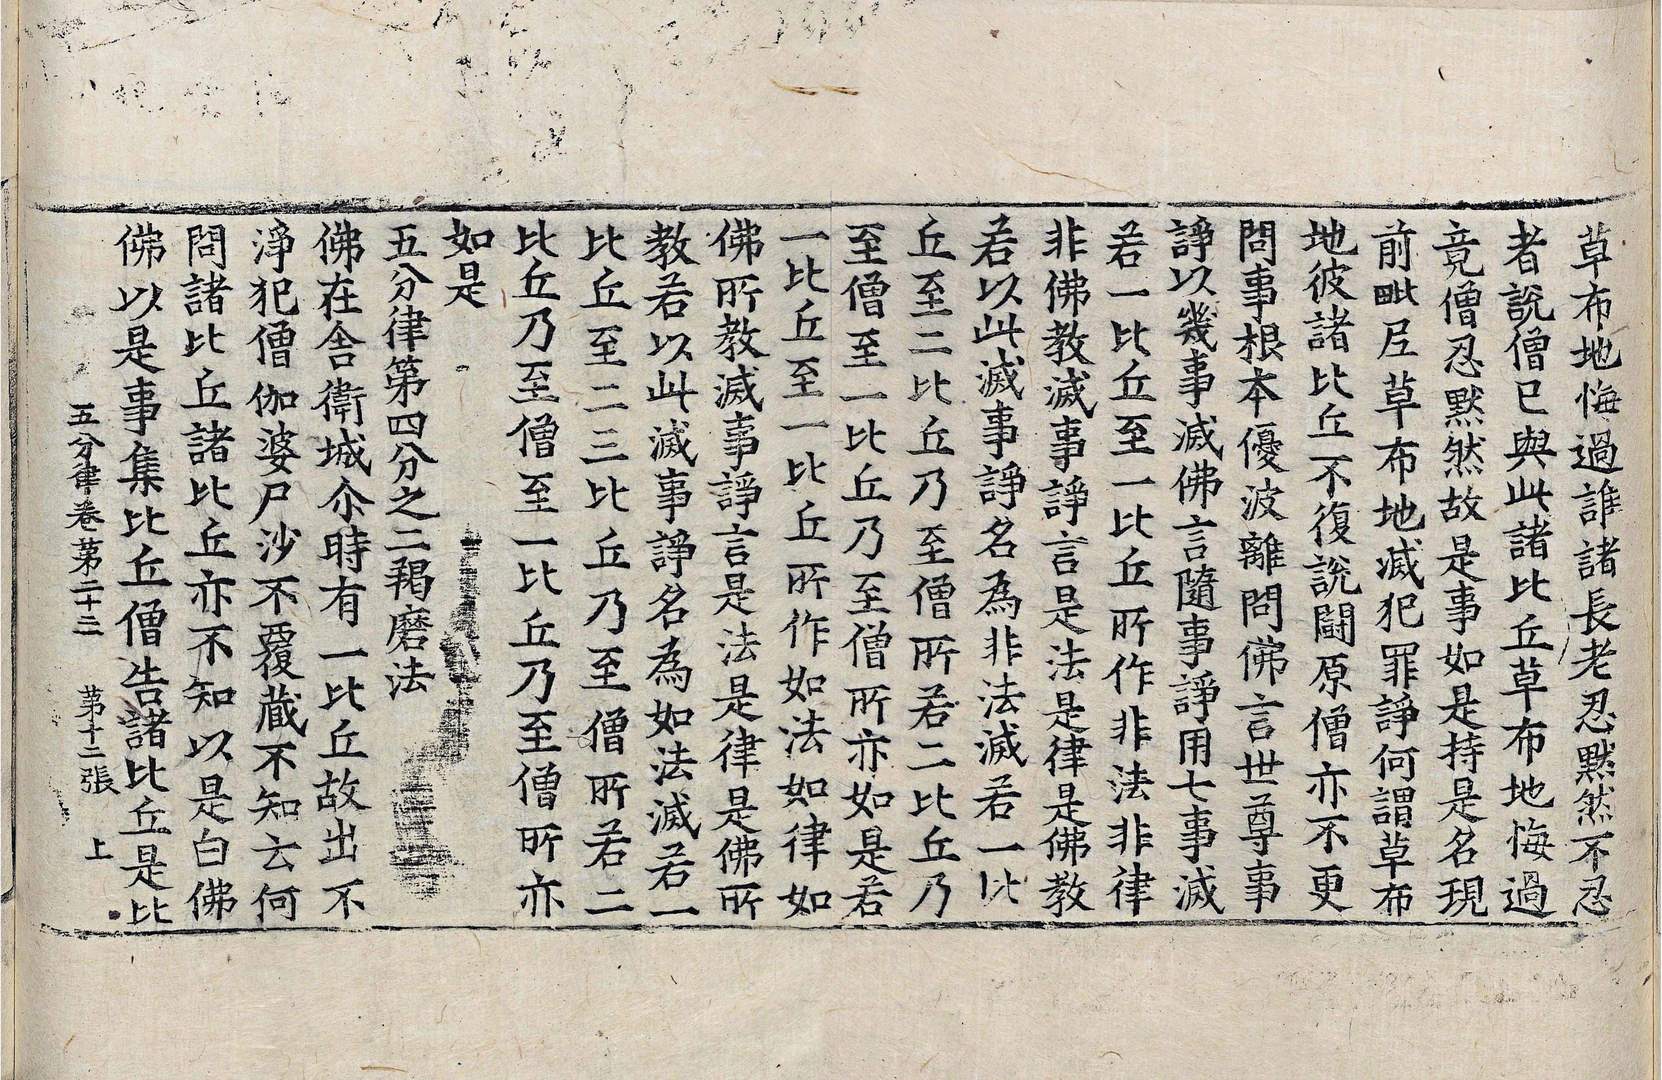 草布地悔過誰諸長老忍默然不忍
者說僧已與此諸比丘草布地悔過
竟僧忍默然故是事如是持是名現
前毗尼草布地滅犯罪諍何謂草布
地彼諸比丘不復說鬪原僧亦不更
問事根本優波離問佛言世尊事
諍以幾事滅佛言隨事諍用七事滅
若一比丘至一比丘所作非法非律
非佛教滅事諍言是法是律是佛教
若以此滅事諍名為非法滅若一比
丘至二比丘乃至僧所若二比丘乃
至僧至一比丘乃至僧所亦如是若
一比丘至一比丘所作如法如律如
佛所教滅事諍言是法是律是佛所
教若以此滅事諍名為如法滅若一
比丘至二三比丘乃至僧所若二
比丘乃至僧至一比丘乃至僧所亦
如是
五分律第四分之二羯磨法
佛在舍衛城尒時有一比丘故出不
淨犯僧伽婆尸沙不覆藏不知云何
問諸比丘諸比丘亦不知以是白佛
佛以是事集比丘僧告諸比丘是比
五分律卷第二十三 第十二張 上